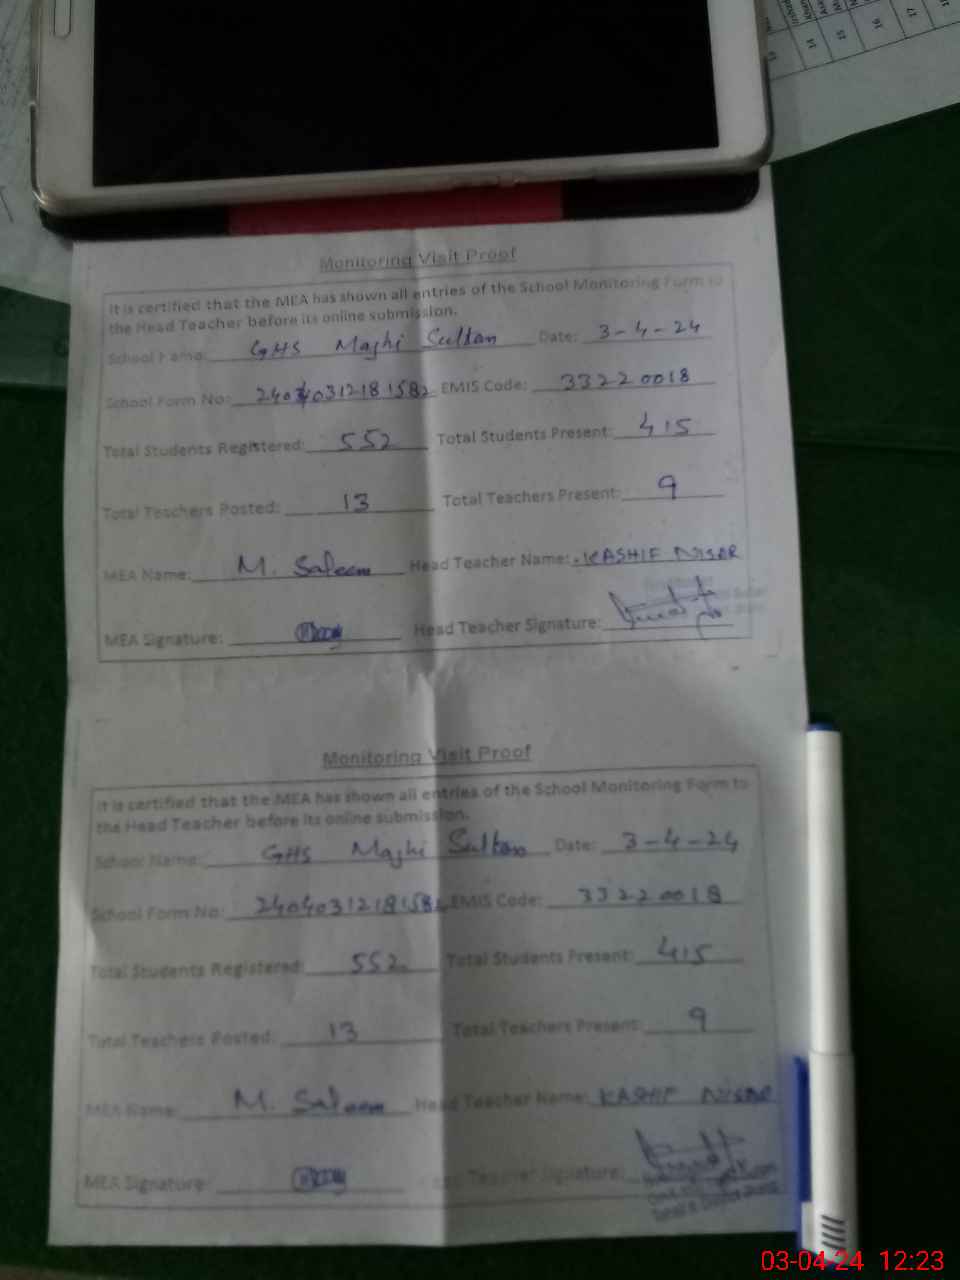 14
15
16
17
Monitoring Visit Proof
It is certified that the MEA has shown all entries of the School Monitoring Form to
the Head Teacher before its online submission.
School Name: GHS Majhi Sultan Date: 3-4-24
School Form No: 24040312181582 EMIS Code: 33220018
Total Students Registered: 552 Total Students Present: 415
Total Teachers Posted: 13 Total Teachers Present: 9
MEA Name: M. Saleem Head Teacher Name: KASHIF NISAR
MEA Signature: Head Teacher Signature:
Monitoring Visit Proof
It is certified that the MEA has shown all entries of the School Monitoring Form to
the Head Teacher before its online submission.
School Name: GHS Majhi Sultan Date: 3-4-24
School Form No: 24040312181582 EMIS Code: 33220018
Total Students Registered: 552 Total Students Present: 415
Total Teachers Posted: 13 Total Teachers Present: 9
MEA Name: M. Saleem Head Teacher Name: KASHIF NISAR
MEA Signature: Head Teacher Signature:
03-04-24 12:23